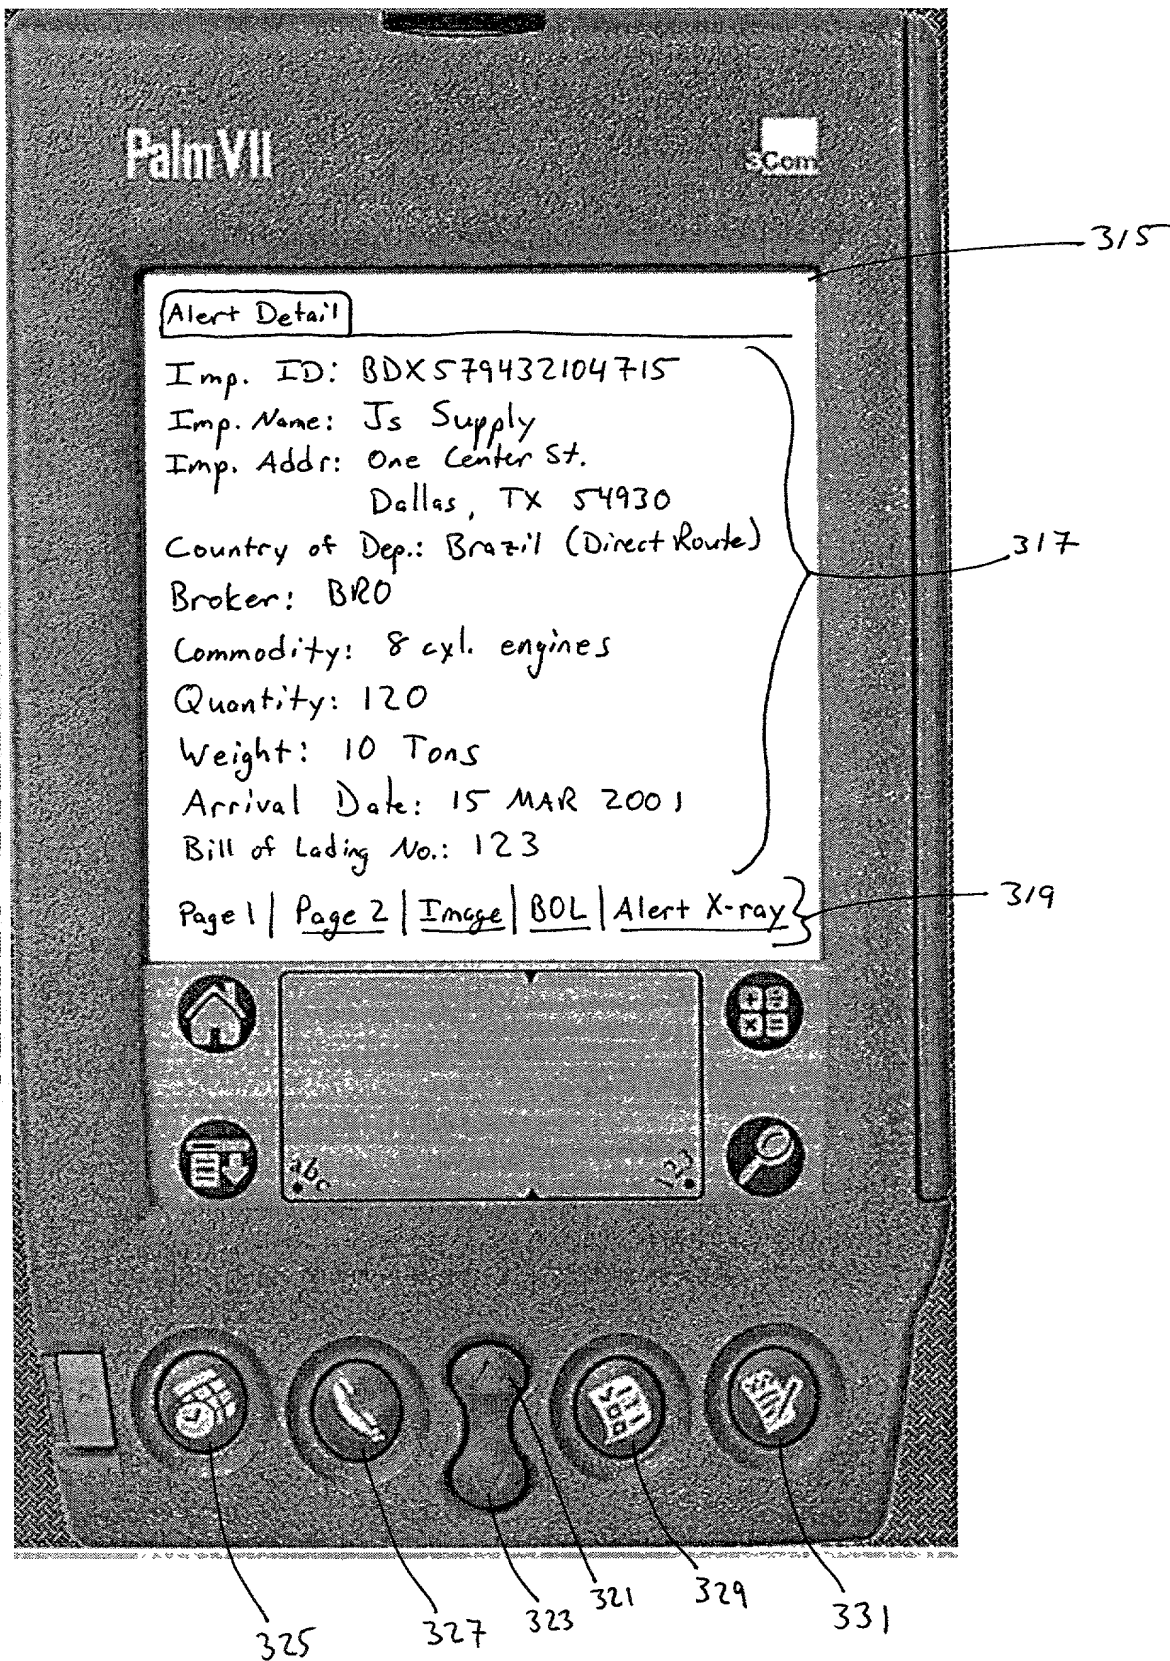 Palm VII
3Com
315
Alert Detail
Imp. ID: BDX579432104715
Imp. Name: Js Supply
Imp. Addr: One Center St.
Dallas, TX 54930
Country of Dep.: Brazil (Direct Route)
317
Broker: BRO
Commodity: 8 cyl. engines
Quantity: 120
Weight: 10 Tons
Arrival Date: 15 MAR 2001
Bill of Lading No.: 123
Page 1 | Page 2 | Image | BOL | Alert X-ray
319
abc
123
325
327
323
321
329
331